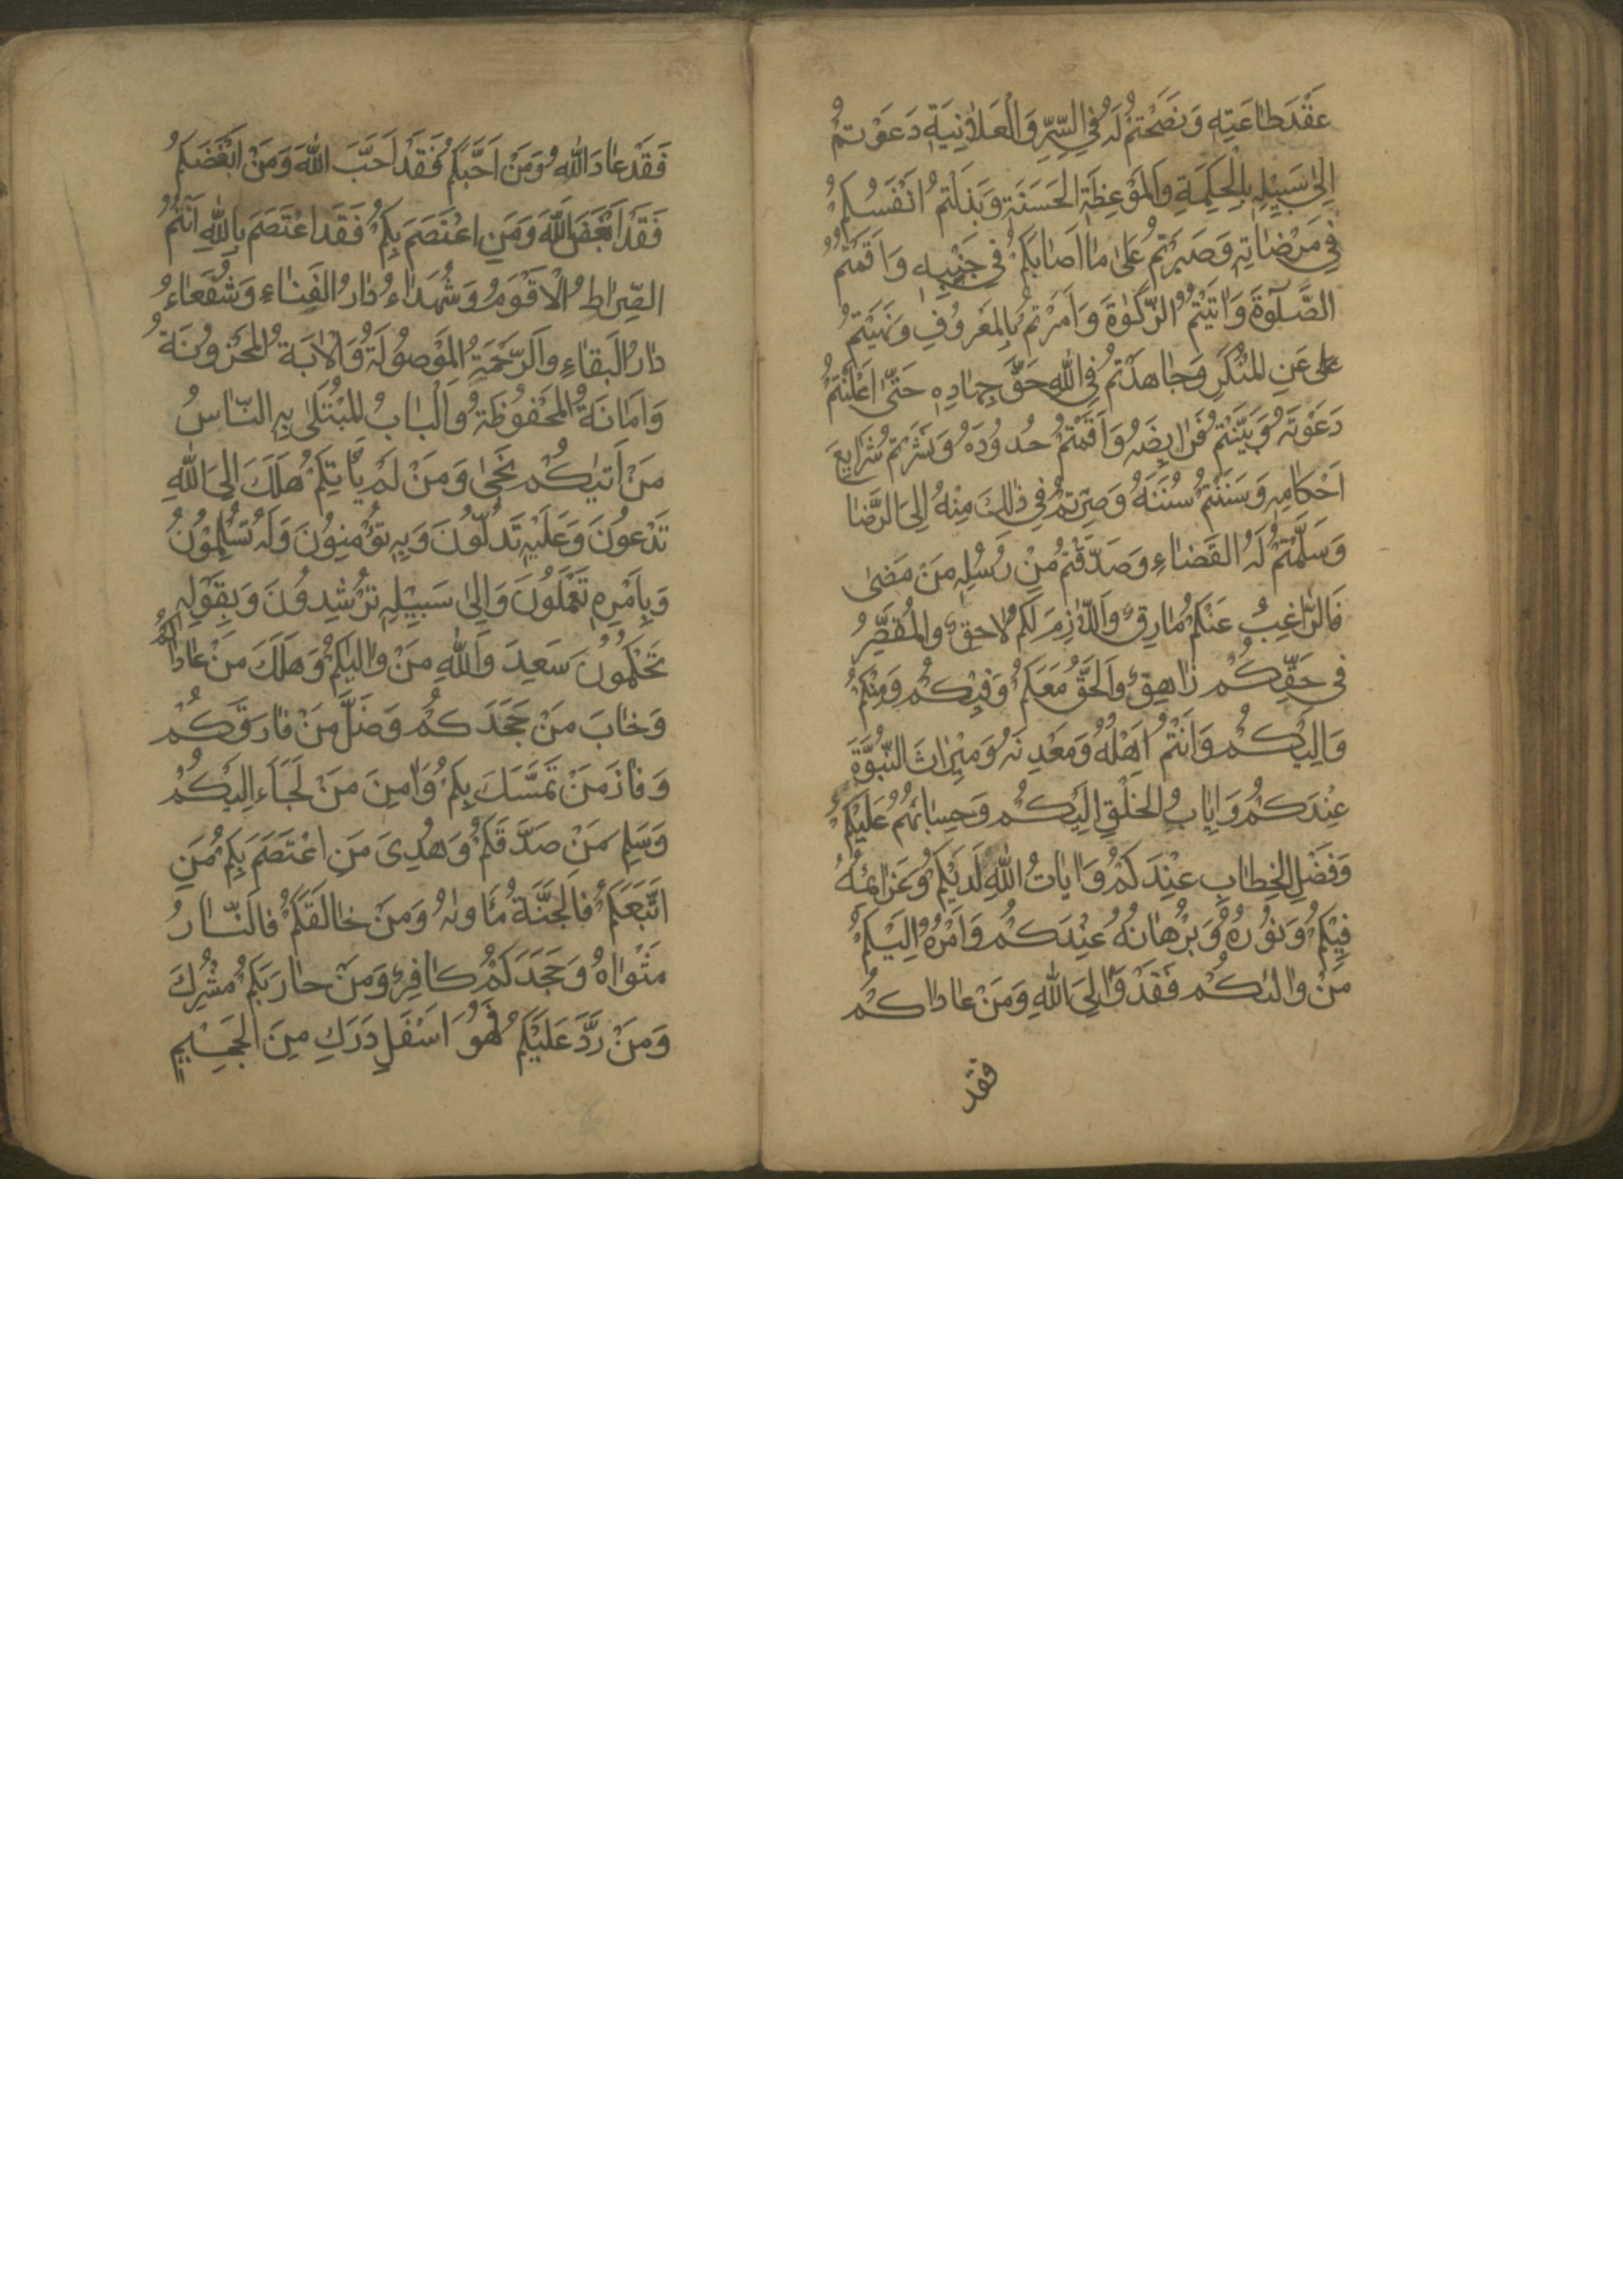 عَقْدَ طَاعَتِهِ وَنَصَحْتُمْ لَهُ فِي السِّرِّ وَالْعَلَانِيَةِ دَعَوْتُمْ
اِلىٰ سَبِيْلِهِ بِالْحِكْمَةِ وَالْمَوْعِظَةِ الْحَسَنَةِ وَبَذَلْتُمْ اَنْفُسَكُمْ
فِي مَرْضَاتِهِ وَصَبَرْتُمْ عَلىٰ مَا اَصَابَكُمْ فِي جَنْبِهِ وَاَقَمْتُمُ
الصَّلٰوةَ وَاٰتَيْتُمُ الزَّكٰوةَ وَاَمَرْتُمْ بِالْمَعْرُوفِ وَنَهَيْتُمْ
عَنِ الْمُنْكَرِ وَجَاهَدْتُمْ فِي اللهِ حَقَّ جِهَادِهِ حَتّىٰ اَعْلَنْتُمْ
دَعْوَتَهُ وَبَيَّنْتُمْ فَرَايِضَهُ وَاَقَمْتُمْ حُدُودَهُ وَنَشَرْتُمْ شَرَايِعَ
اَحْكَامِهِ وَسَنَنْتُمْ سُنَنَهُ وَصِرْتُمْ فِي ذٰلِكَ مِنْهُ اِلَى الرِّضَا
وَسَلَّمْتُمْ لَهُ الْقَضَاءِ وَصَدَّقْتُمْ مِنْ رُسُلِهِ مَنْ مَضىٰ
فَالرَّاغِبُ عَنْكُمْ مَارِقٌ وَاللَّازِمُ لَكُمْ لَاحِقٌ وَالْمُقَصِّرُ
فِي حَقِّكُمْ زَاهِقٌ وَالْحَقُّ مَعَكُمْ وَفِيْكُمْ وَمِنْكُمْ
وَاِلَيْكُمْ وَاَنْتُمْ اَهْلُهُ وَمَعْدِنُهُ وَمِيْرَاثُ النُّبُوَّةِ
عِنْدَكُمْ وَاِيَابُ الْخَلْقِ اِلَيْكُمْ وَحِسَابُهُمْ عَلَيْكُمْ
وَفَصْلُ الْخِطَابِ عِنْدَكُمْ وَاٰيَاتُ اللهِ لَدَيْكُمْ وَعَزَائِمُهُ
فِيْكُمْ وَنُورُهُ وَبُرْهَانُهُ عِنْدَكُمْ وَاَمْرُهُ اِلَيْكُمْ
مَنْ وَالٰىكُمْ فَقَدْ وَالَى اللهِ وَمَنْ عَادَاكُمْ
فقد
فَقَدْ عَادَ اللهَ وَمَنْ اَحَبَّكُمْ فَقَدْ اَحَبَّ اللهَ وَمَنْ اَبْغَضَكُمْ
فَقَدْ اَبْغَضَ اللهَ وَمَنِ اعْتَصَمَ بِكُمْ فَقَدِ اعْتَصَمَ بِاللهِ اَنْتُمُ
الصِّرَاطُ الْاَقْوَمُ وَشُهَدَاءُ دَارِ الْفَنَاءِ وَشُفَعَاءُ
دَارِ الْبَقَاءِ وَالرَّحْمَةُ الْمَوْصُولَةُ وَالْاٰيَةُ الْمَخْزُونَةُ
وَاَمَانَةُ الْمَحْفُوظَةُ وَالْبَابُ الْمُبْتَلىٰ بِهِ النَّاسُ
مَنْ اَتٰيكُمْ نَجىٰ وَمَنْ لَمْ يَأْتِكُمْ هَلَكَ اِلَى اللهِ
تَدْعُونَ وَعَلَيْهِ تَدُلُّونَ وَبِهِ تُؤْمِنُونَ وَلَهُ تُسَلِّمُونَ
وَبِاَمْرِهِ تَعْمَلُونَ وَاِلىٰ سَبِيْلِهِ تُرْشِدُونَ وَبِقَوْلِهِ
تَحْكُمُونَ سَعِدَ وَاللهِ مَنْ وَالٰيكُمْ وَهَلَكَ مَنْ عَادَاكُمْ
وَخَابَ مَنْ جَحَدَكُمْ وَضَلَّ مَنْ فَارَقَكُمْ
وَفَازَ مَنْ تَمَسَّكَ بِكُمْ وَاَمِنَ مَنْ لَجَاَءَ اِلَيْكُمْ
وَسَلِمَ مَنْ صَدَّقَكُمْ وَهُدِيَ مَنِ اعْتَصَمَ بِكُمْ مَنِ
اتَّبَعَكُمْ فَالْجَنَّةُ مَأْوٰىهُ وَمَنْ خَالَفَكُمْ فَالنَّارُ
مَثْوَاهُ وَجَحَدَكُمْ كَافِرٌ وَمَنْ حَارَبَكُمْ مُشْرِكٌ
وَمَنْ رَدَّ عَلَيْكُمْ فَهُوَ اَسْفَلِ دَرَكٍ مِنَ الْجَحِيْمِ